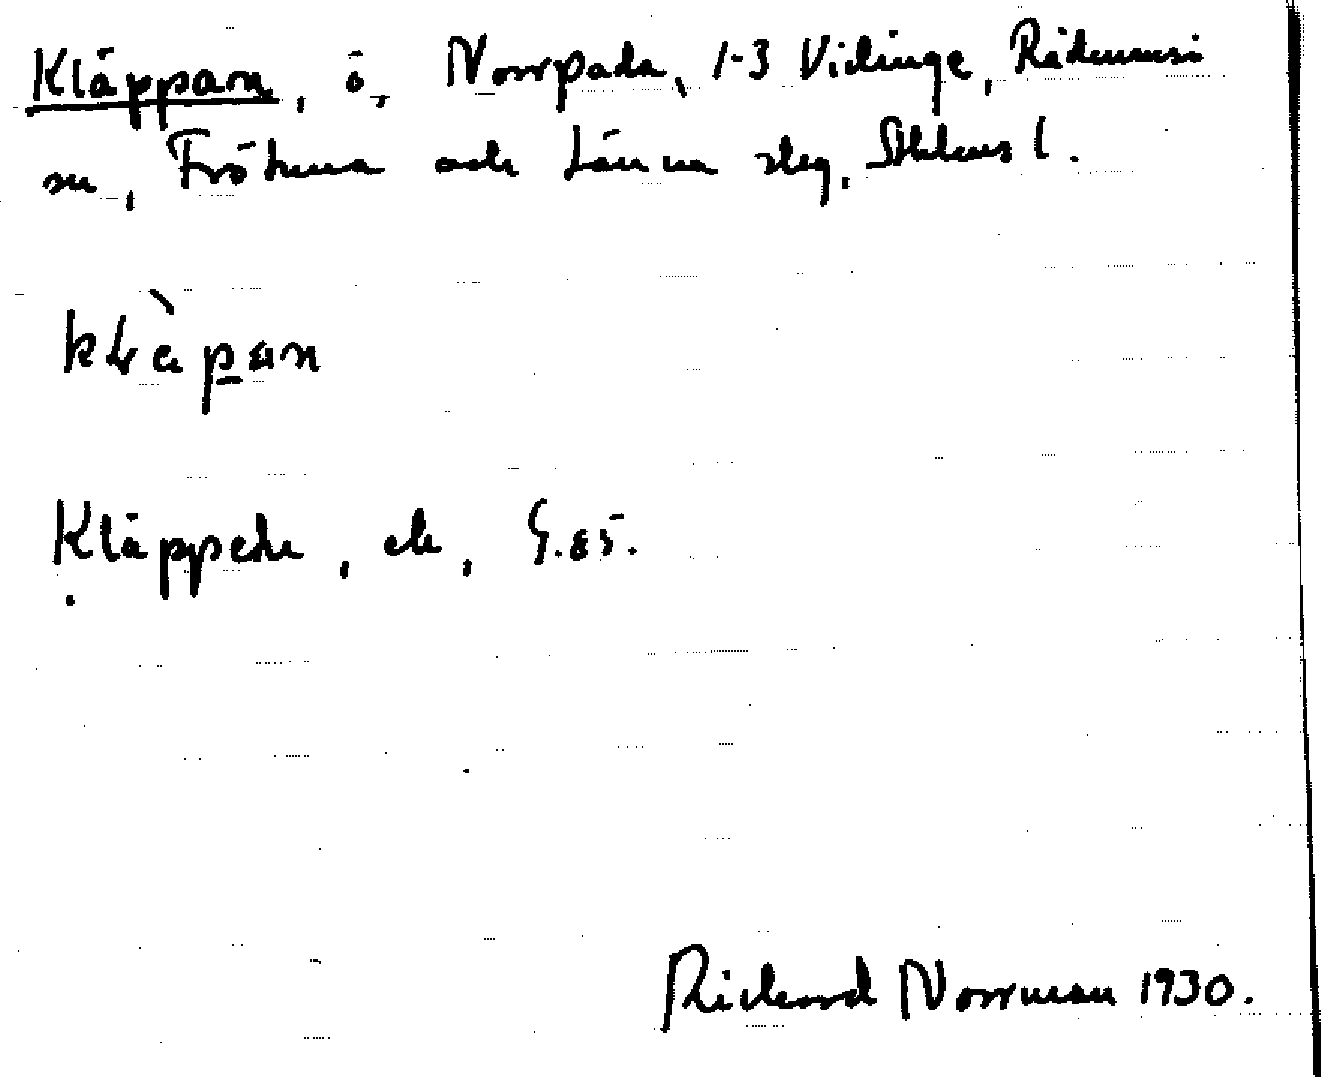 Kläppan, ö, Norrpada, 1-3 Vidinge, Rådmansö
sn, Frötuna och Länna slg, Sthlms l.
klὰpan
Kläppen, ek, G.85.
Rickard Norrman 1930.